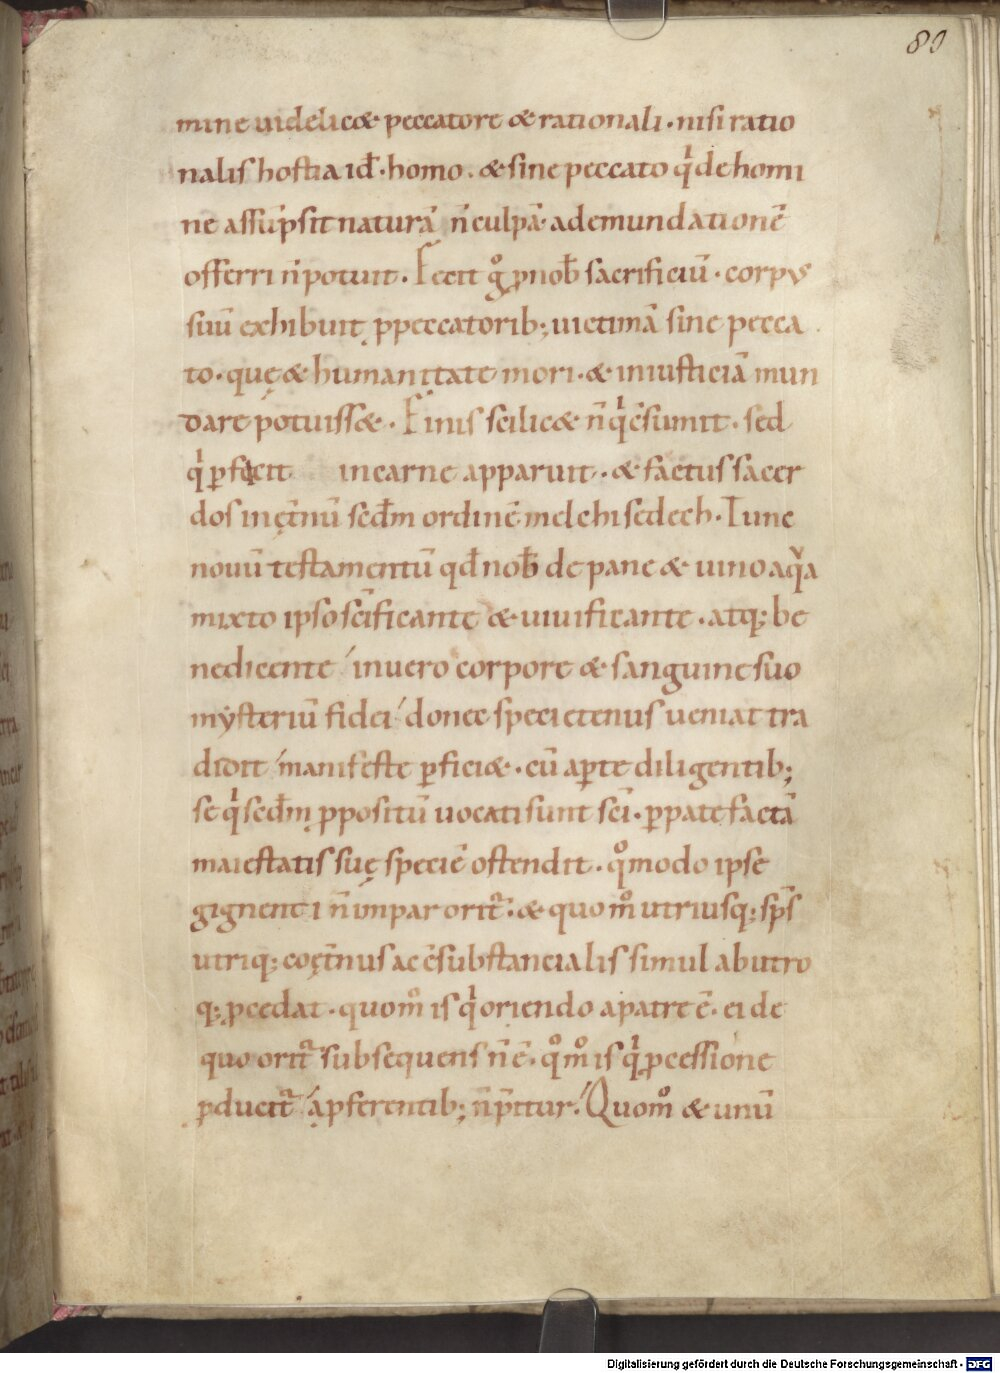 80
mine uidelic& peccatore & rationali · nisi ratio
nalis hostia id̄ · homo · & sine peccato qͥ de homi
ne assūpsit naturā n̄ culpā · ad emundationē
offerri n̄ potuit · Fecit gͦ ꝓ nob̄ sacrificiū · corpus
suū exhibuit ꝓ peccatorib; uictimā sine pecca
to · quę & humanitate mori · & iniusticiā mun
dare potuiss& · Finis scilic& n̄ qͥ c̄sumit · sed
qͥ ꝑfecit in carne apparuit · & factus sacer
dos in ęt̄nū secd̄m ordinē melchisedech · Tunc
nouū testamentū qd̄ nob̄ de pane & uino aqͣa
mixto ipso sc̄ificante & uiuificante · atq; be
nedicente in uero corpore & sanguine suo
mẏsteriū fidei donec specietenus ueniat tra
didit manifeste ꝑfici& · cū aꝑte diligentib;
se qͥ secd̄m ꝓpositū uocati sunt sc̄i · ꝑ patefactā
maiestatis suę speciē ostendit · qͦmodo ipse
gignenti n̄ impar orit᷑ · & quom̊ utriusq; sp̄s
utriq; coęt̄nus ac c̄substancialis simul ab utro
q; ꝓcedat · quom̊ is qͥ oriendo a patre ē · ei de
quo orit᷑ subsequens n̄ ē · qͦm̊ is qͥ ꝓcessione
ꝓducit᷑ a ꝓferentib; n̄ p̄it᷑ur · Quom̊ & unū
Digitalisierung gefördert durch die Deutsche Forschungsgemeinschaft - DFG